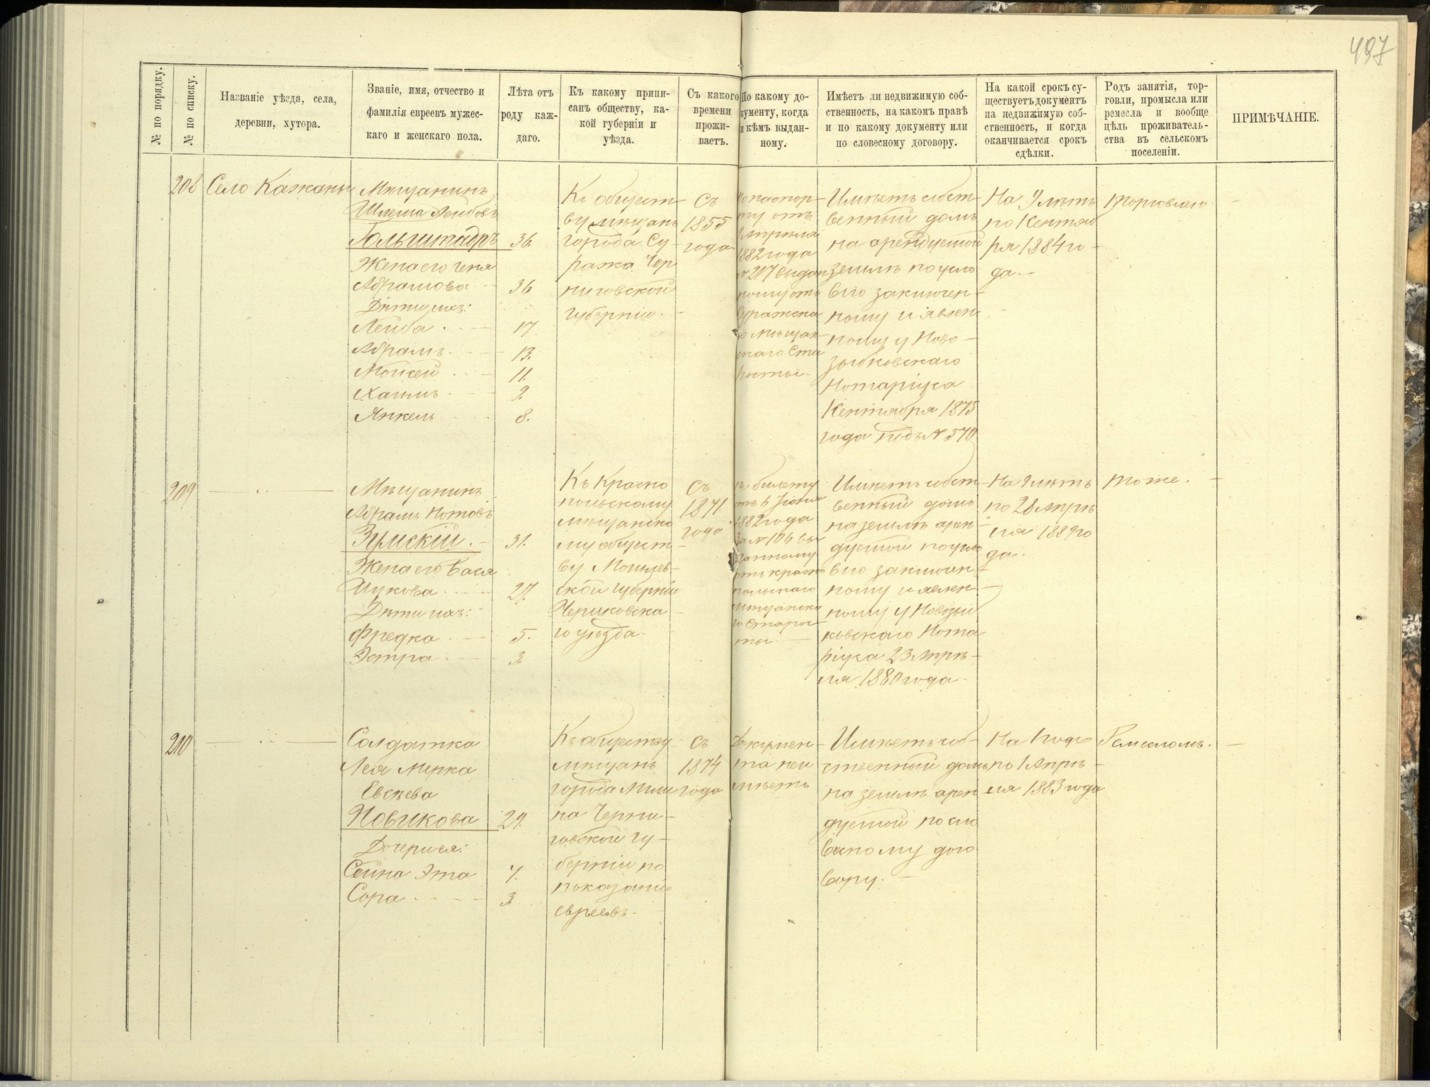 497
№№ по порядку.
№№ по списку.
Названіе уѣзда, села,
деревни, хутора.
Званіе, имя, отчество и
фамилія евреевъ мужес-
каго и женскаго пола.
Лѣта отъ
роду каж-
даго.
Къ какому припи-
санъ обществу, ка-
кой губерніи и
уѣзда.
Съ какого
времени
прожи-
ваетъ.
По какому до-
кументу, когда
и кѣмъ выдан-
ному.
Имѣетъ ли недвижимую соб-
ственность, на какомъ правѣ
и по какому документу или
по словесному договору.
На какой срокъ су-
ществуетъ документъ
на недвижимую соб-
ственность, и когда
оканчивается срокъ
сдѣлки.
Родъ занятія, тор-
говли, промысла или
ремесла и вообще
цѣль проживатель-
ства въ сельскомъ
поселеніи.
ПРИМѢЧАНІЕ.
208
Село Кажаны
Мѣщанинъ
Шлема Лейбовъ
Гольштадръ
Жена его Геня
Абрамова
Дѣти ихъ:
Лейба
Абрамъ
Мойсей
Хаимъ
Янкель
36
36
17
13
11
9
8
Къ общест-
ву мѣщанъ
города Су-
ража Чер-
ниговской
губерніи.
Съ
1855
года
По паспор-
ту отъ
Апрѣля
1882 года
№ 217 выдан
ному отъ
Суражска
го мѣщан
скаго Ста
росты.
Имѣетъ собст-
венный домъ
на арендуемой
землѣ по усло
вію заключен-
ному и явлен
ному у Ново-
зыбковскаго
Нотаріуса
Сентября 1875
года подъ № 570
На 9 лѣтъ
по Сентяб
ря 1884 го-
да.
Торговлею
209
Мѣщанинъ
Абрамъ Нотовъ
Зимскій
Жена его Бася
Ицкова
Дѣти ихъ:
Фредка
Эстра
31
27
5
3
Къ Красно
польскому
мѣщанско
му общест-
ву Могилев-
ской губерніи
Чериковска
го уѣзда.
Съ
1871
года
По билету
отъ 6 Іюня
1882 года
за № 106 вы
данному
отъ красно
польскаго
мѣщанска
го Старос
ты
Имѣетъ собст-
венный домъ
на землѣ арен-
дуемой по усло
вію заключен-
ному и явлен-
ному у Новозыб
ковскаго Нота
ріуса 23 Апрѣ-
ля 1880 года.
На 9 лѣтъ
по 28 Апрѣ
ля 1889 го
да.
тоже.
210
Солдатка
Лея Мерка
Евсѣева
Новикова
Дочери ея:
Сейна Эта
Сора
29
7
3
Къ обществу
мѣщанъ
города Мгли
на Черни-
говской гу-
берніи по
показанію
евреевъ.
Съ
1874
года
Докумен-
та не и
мѣетъ
Имѣетъ соб-
ственный домъ
на землѣ арен
дуемой по сло
весному дого
вору.
На 1 годъ
по 1 Апрѣ-
ля 1883 года
Ремесломъ.